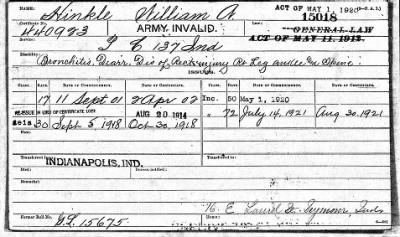 Hinkle William A. ACT OF MAY 1, 1920
440993 ARMY INVALID. 15018
GENERAL LAW
F C 137 Ind ACT OF MAY 11, 1912.
Disability: Bronchitis, Diarr, Dis of Rect, injury Rt Leg
ISSUES.
CLASS. RATE. DATE OF COMMENCEMENT. DATE OF CERTIFICATE. CLASS. RATE. DATE OF COMMENCEMENT. DATE OF CERTIFICATE.
17 11 Sept 01 2 Apr 02 Inc. 50 May 1, 1920
REISSUE IN LIEU OF CERTIFICATE LOST AUG 20 1914 " 72 July 14, 1921 Aug 30, 1921
30 Sept 5, 1918 Oct 30, 1918
Transferred to
INDIANAPOLIS, IND.
Transferred from
Died
Remarks:
E. Laurel St Seymour Inds
Former Roll No. 15675